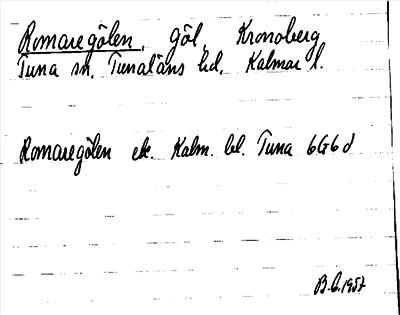 Romaregölen, göl, Kronoberg
Tuna sn, Tunaläns hd, Kalmar l.
Romaregölen ek. Kalm. bl. Tuna 6G6d
B.G. 1957